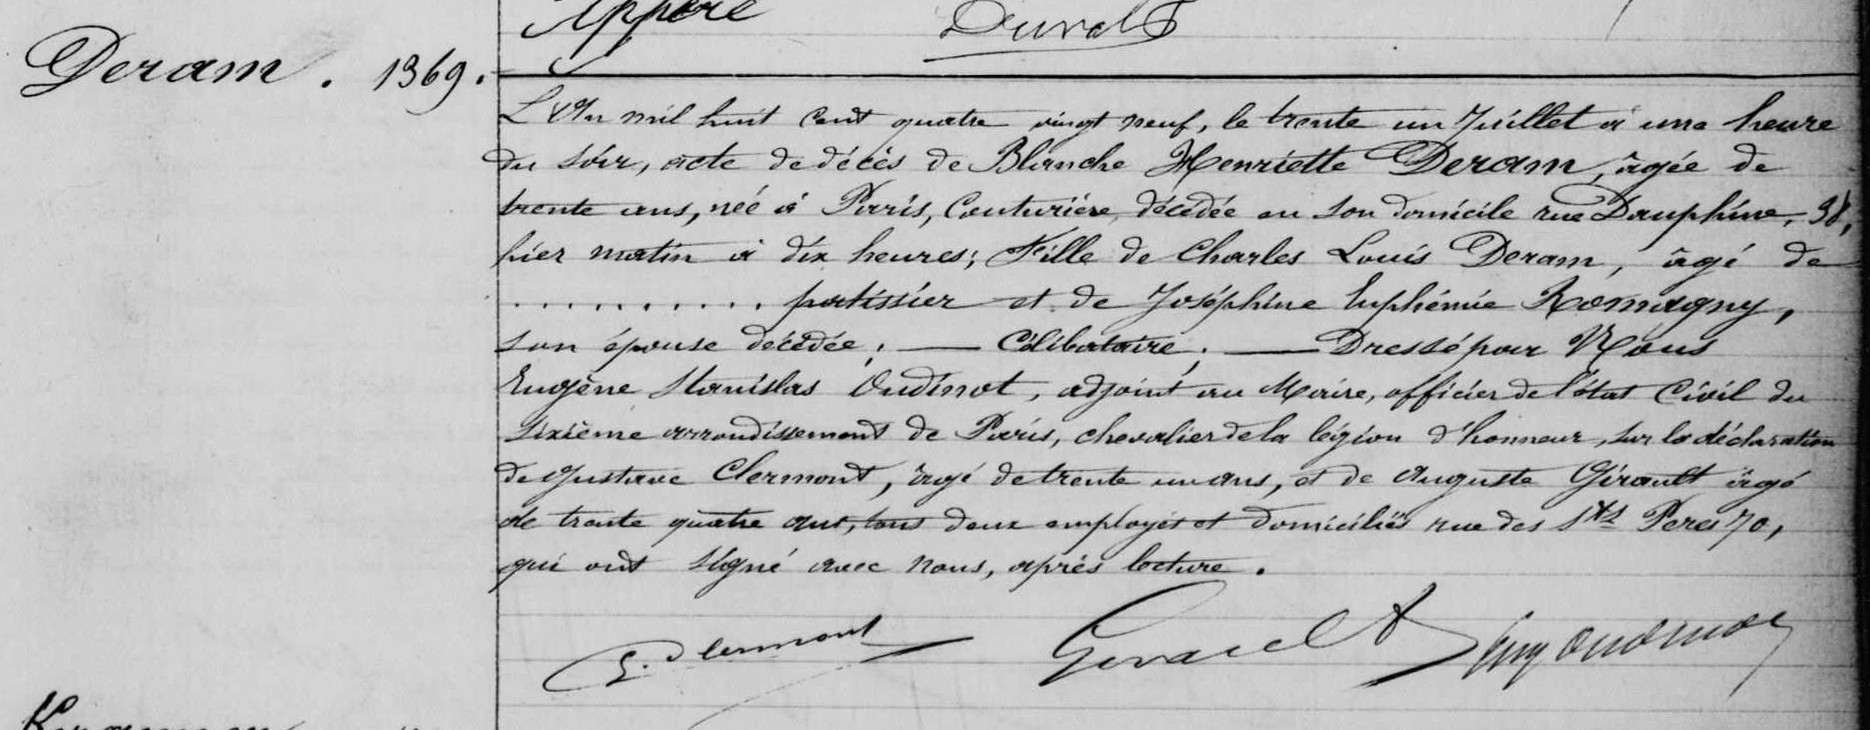 Appere Duval
Deram. 1369.
L'An mil huit cent quatre vingt neuf, le trente un Juillet à une heure
du soir, acte de décès de Blanche Henriette Deram, âgée de
trente ans, née à Paris, Couturière, décédée en son domicile rue Dauphine, 38,
hier matin à dix heures; Fille de Charles Louis Deram, âgé de
............ patissier et de Joséphine Euphémie Romagny,
son épouse décédée; — Célibataire. — Dressé par Nous
Eugène Stanislas Oudinot, adjoint au Maire, officier de l'état Civil du
sixième arrondissement de Paris, chevalier de la légion d'honneur, sur la déclaration
de Gustave Clermont, âgé de trente un ans, et de Auguste Girault âgé
de trente quatre ans, tous deux employés et domiciliés rue des Sts Peres 70,
qui ont signé avec nous, après lecture.
G. Clermont Girault